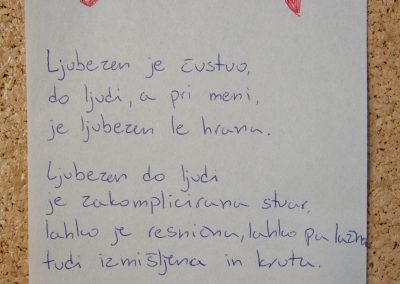 Ljubezen je čustvo,
do ljudi, a pri meni,
je ljubezen le hrana.
Ljubezen do ljudi
je zakomplicirana stvar,
lahko je resnična, lahko pa lažna
tudi izmišljena in kruta.